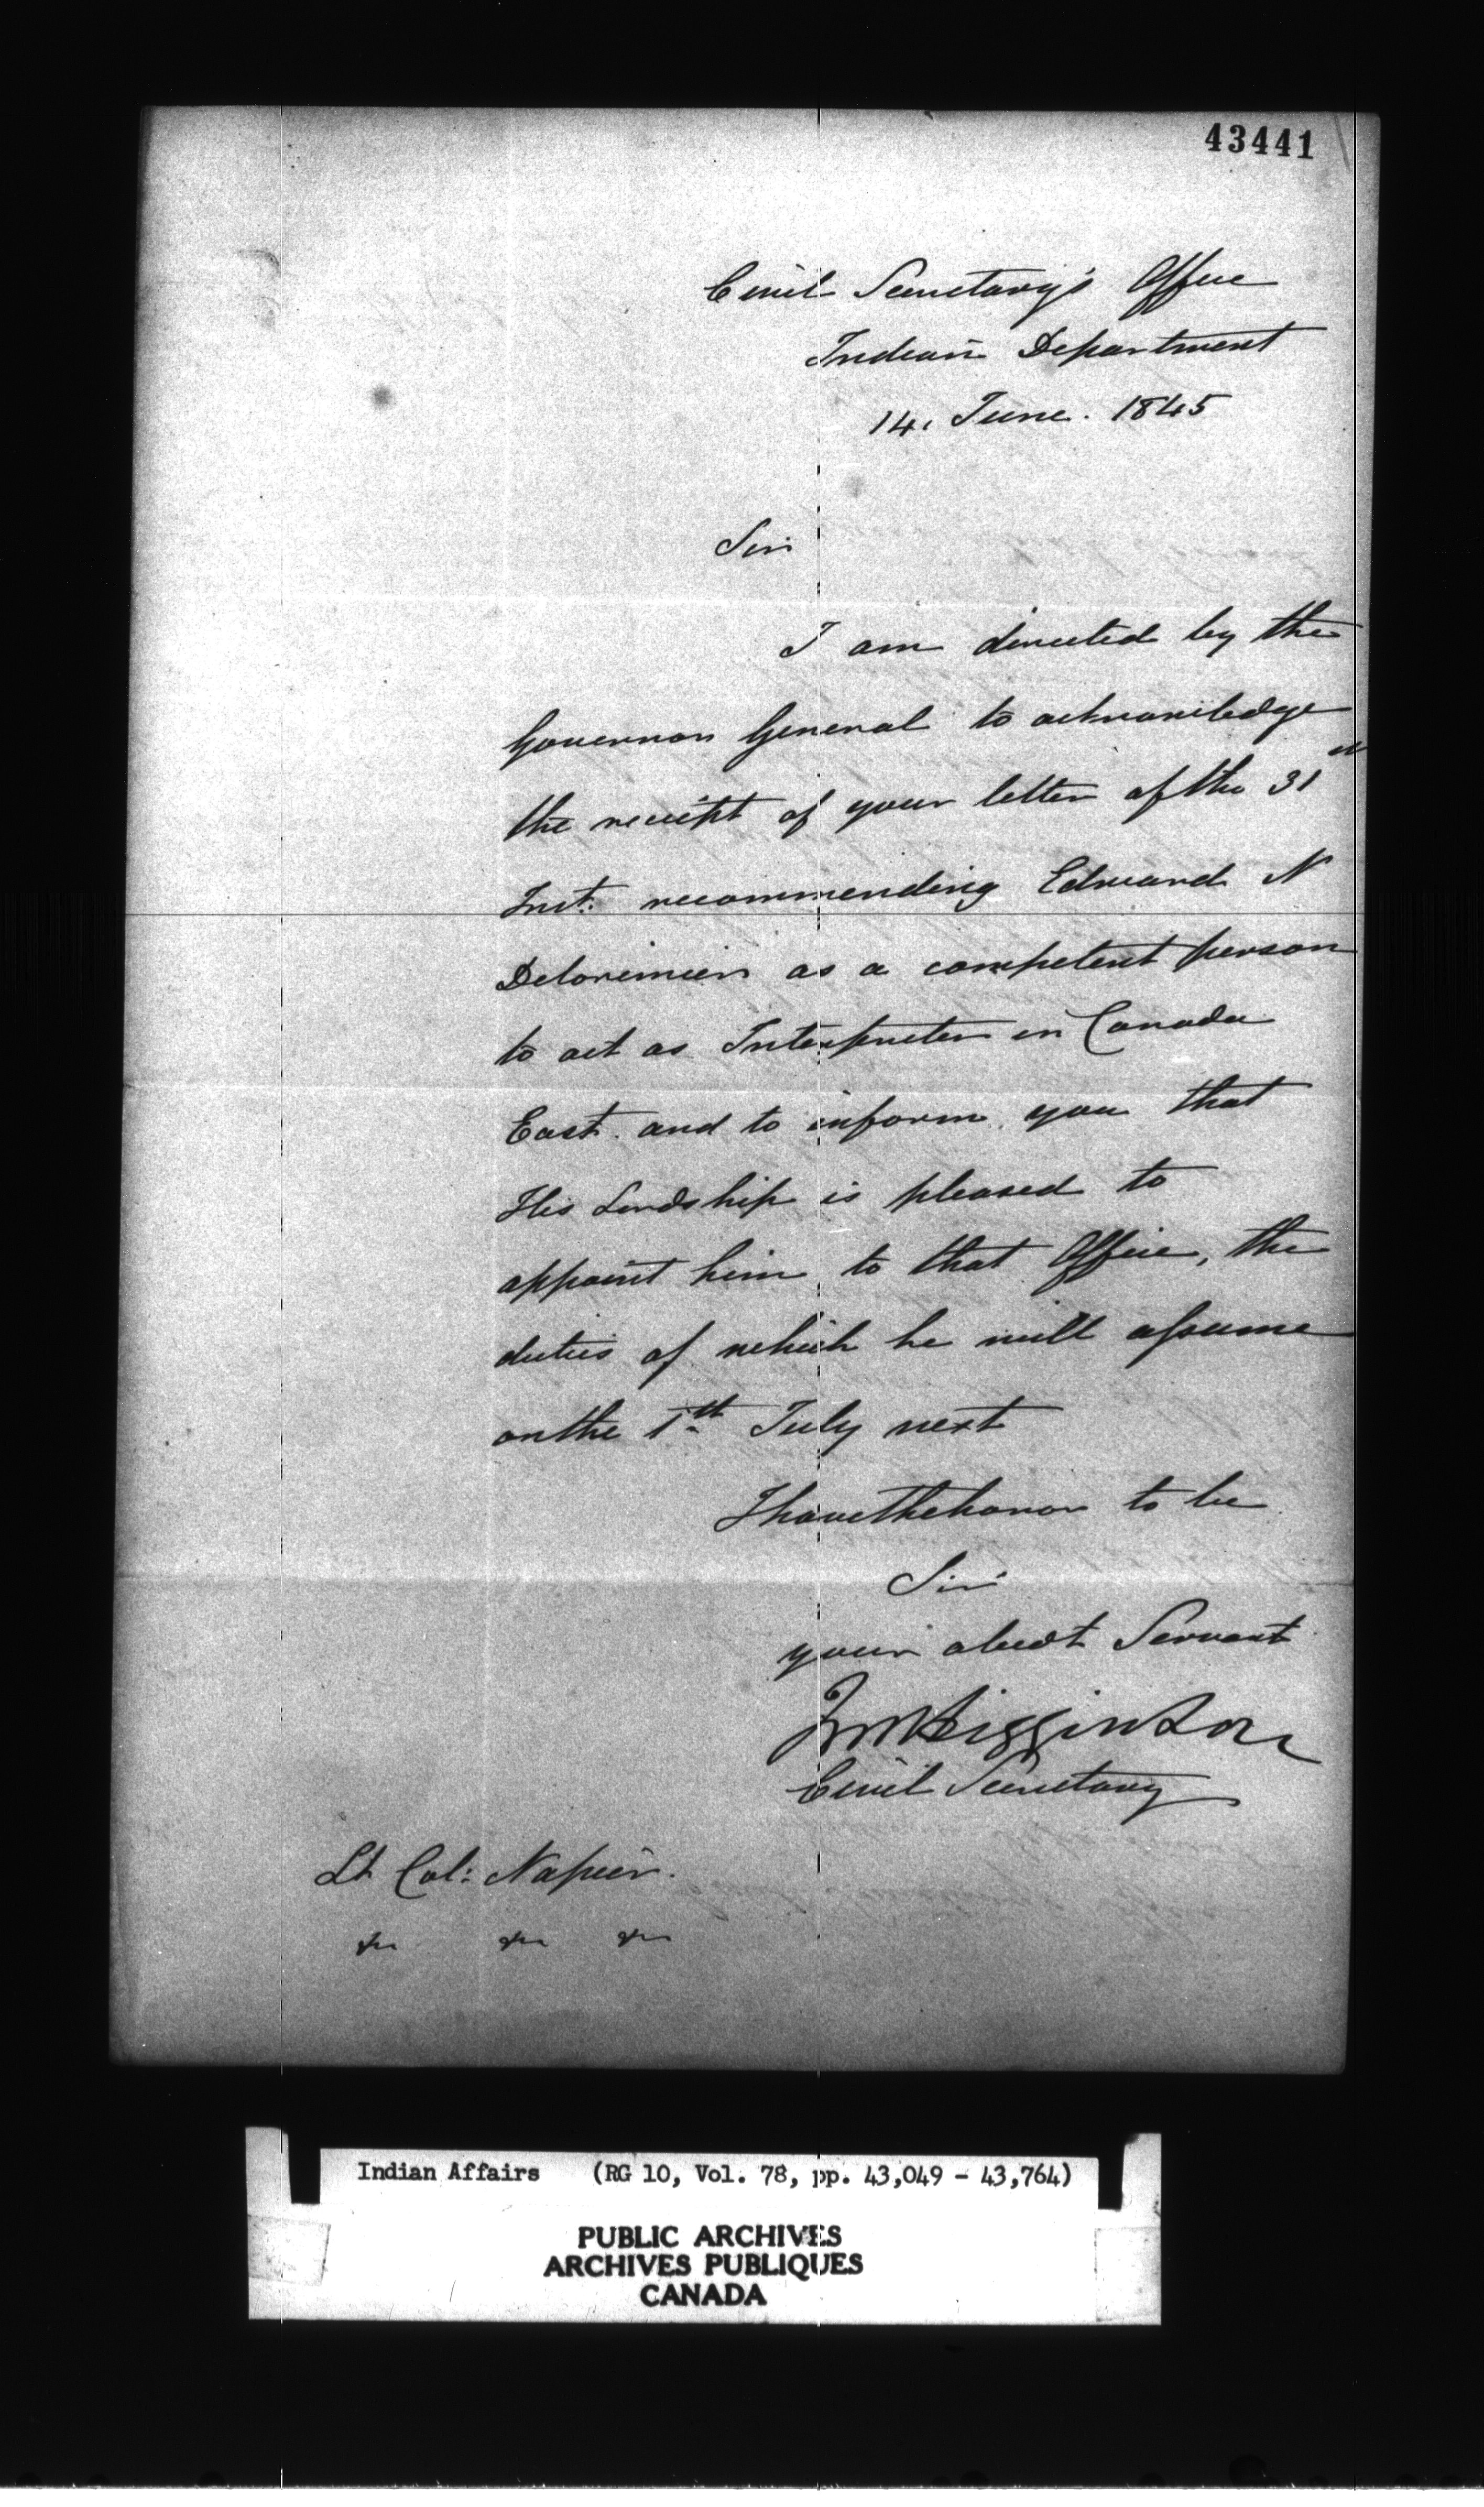 43441
Civil Secretary's Office
Indian Department
14. June. 1845
Sir
I am directed by the
Governor General to acknowledge
the receipt of your letter of the 31
Inst: recommending Edward N
Delorimier as a competent person
to act as Interpreter in Canada
East. and to inform you that
His Lordship is pleased to
appoint him to that Office, the
duties of which he will assume
on the 1st July next
I have the honor to be
Sir
your obedt Servant
JM Higginson
Civil Secretary
Lt Col: Napier.
&c &c &c
Indian Affairs (RG 10, Vol. 78, pp. 43,049 - 43,764)
PUBLIC ARCHIVES
ARCHIVES PUBLIQUES
CANADA